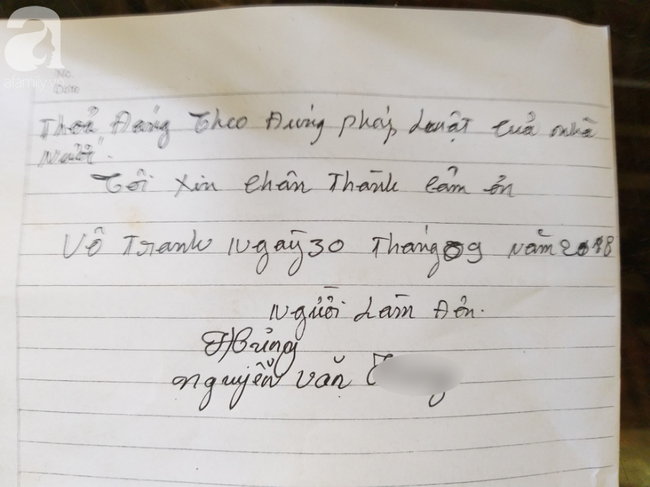 afamily.vn
No.
Date
Thoả Đáng Theo Đúng Pháp Luật của nhà
Nước.
Tôi xin chân Thành cảm ơn
Vô Tranh Ngày 30 Tháng 09 năm 2018
Người Làm Đơn.
Nguyễn Văn